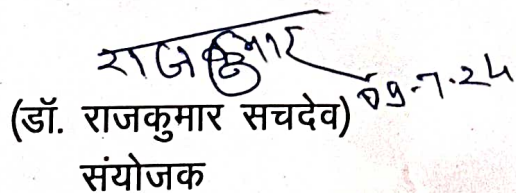 राजकुमार
09-7-24
(डॉ. राजकुमार सचदेव)
संयोजक